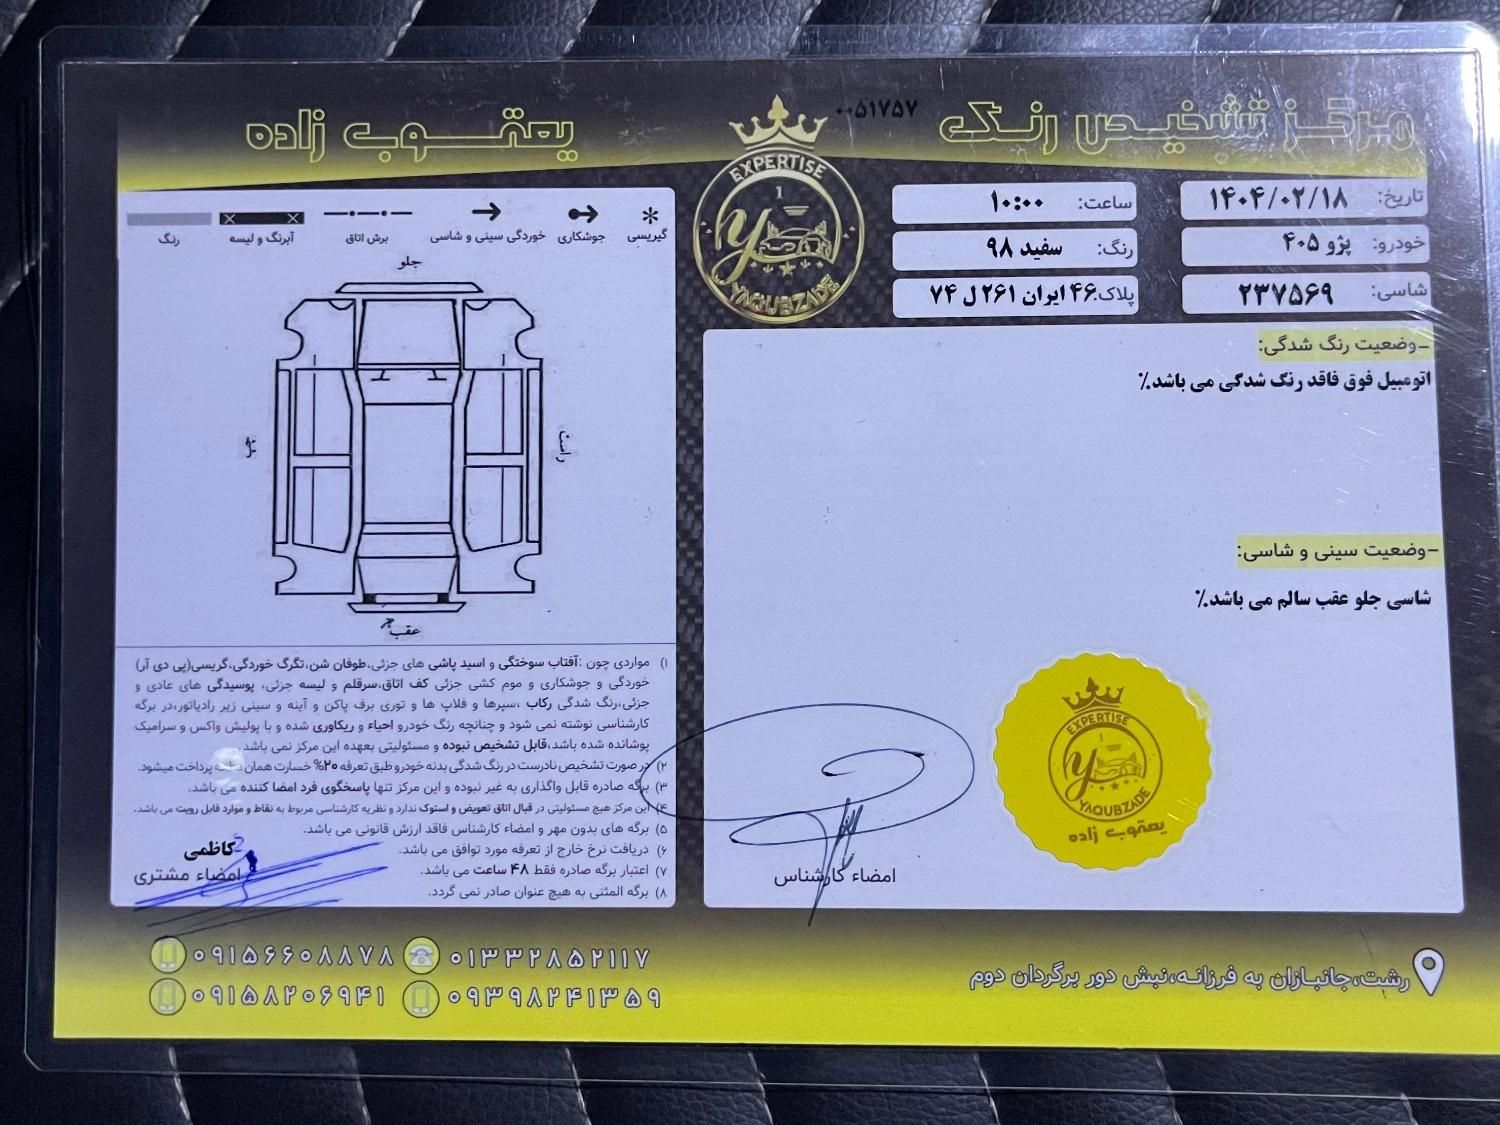 مرکز تشخیص رنگ
۰۰۵۱۷۵۷
یعقوب زاده
EXPERTISE
YAQUBZADE
تاریخ: ۱۴۰۴/۰۲/۱۸
ساعت: ۱۰:۰۰
خودرو: پژو ۴۰۵
رنگ: سفید ۹۸
شاسی: ۲۳۷۵۶۹
پلاک: ۴۶ ایران ۲۶۱ ل ۷۴
-وضعیت رنگ شدگی:
اتومبیل فوق فاقد رنگ شدگی می باشد.٪
-وضعیت سینی و شاسی:
شاسی جلو عقب سالم می باشد.٪
EXPERTISE
YAQUBZADE
یعقوب زاده
امضاء کارشناس
گیریسی
جوشکاری
خوردگی سینی و شاسی
برش اتاق
آبرنگ و لیسه
رنگ
جلو
راست
چپ
عقب
۱) مواردی چون :آفتاب سوختگی و اسید پاشی های جزئی،طوفان شن،تگرگ خوردگی،گریسی(پی دی آر)
خوردگی و جوشکاری و موم کشی جزئی کف اتاق،سرقلم و لیسه جزئی، پوسیدگی های عادی و
جزئی،رنگ شدگی رکاب ،سپرها و فلاپ ها و توری برف پاکن و آینه و سینی زیر رادیاتور،در برگه
کارشناسی نوشته نمی شود و چنانچه رنگ خودرو احیاء و ریکاوری شده و با پولیش واکس و سرامیک
پوشانده شده باشد،قابل تشخیص نبوده و مسئولیتی بعهده این مرکز نمی باشد.
۲) در صورت تشخیص نادرست در رنگ شدگی بدنه خودرو طبق تعرفه ۲۰% خسارت همان پرداخت میشود.
۳) برگه صادره قابل واگذاری به غیر نبوده و این مرکز تنها پاسخگوی فرد امضا کننده می باشد.
۴) این مرکز هیچ مسئولیتی در قبال اتاق تعویض و استوک ندارد و نظریه کارشناسی مربوط به نقاط و موارد قابل رویت می باشد.
۵) برگه های بدون مهر و امضاء کارشناس فاقد ارزش قانونی می باشد.
۶) دریافت نرخ خارج از تعرفه مورد توافق می باشد.
۷) اعتبار برگه صادره فقط ۴۸ ساعت می باشد.
۸) برگه المثنی به هیچ عنوان صادر نمی گردد.
کاظمی
امضاء مشتری
۰۹۱۵۶۶۰۸۸۷۸
۰۱۳۳۲۸۵۲۱۱۷
۰۹۱۵۸۲۰۶۹۴۱
۰۹۳۹۸۲۴۱۳۵۹
رشت،جانبازان به فرزانه،نبش دور برگردان دوم